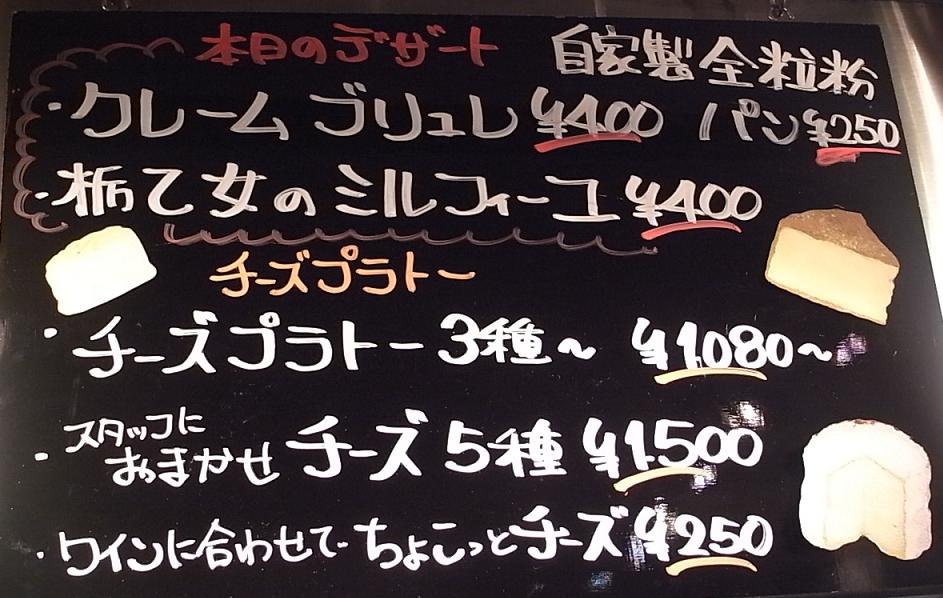 本日のデザート
自家製全粒粉
・クレーム ブリュレ ¥400
パン ¥250
・栃乙女のミルフィーユ ¥400
チーズプラトー
・チーズプラトー 3種～ ¥1,080～
・スタッフに
おまかせ チーズ 5種 ¥1,500
・ワインに合わせて ちょこっとチーズ ¥250